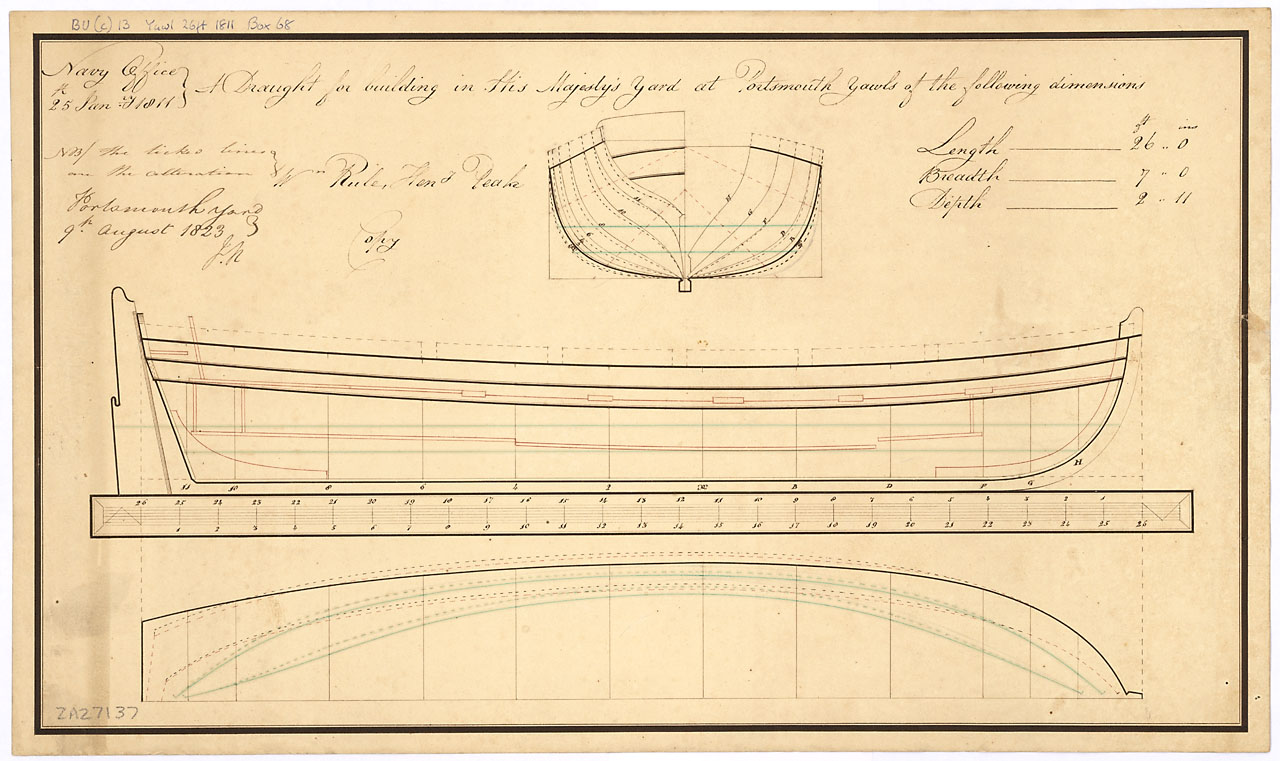 BU (c) 13 Yawl 26ft 1811 Box 68
Navy Office
25th Jany 1811
A Draught for building in His Majesty's Yard at Portsmouth Yawls of the following dimensions
ft ins
Length 26 .. 0
Breadth 7 .. 0
Depth 2 .. 11
NB/ the ticked lines
are the alteration
Wm Rule, Heny Peake
Portsmouth Yard
9th August 1823
Copy
H G F D B
11 10 8 6 4 2 B D F G H
26 25 24 23 22 21 20 19 18 17 16 15 14 13 12 11 10 9 8 7 6 5 4 3 2 1
1 2 3 4 5 6 7 8 9 10 11 12 13 14 15 16 17 18 19 20 21 22 23 24 25 26
ZAZ7137